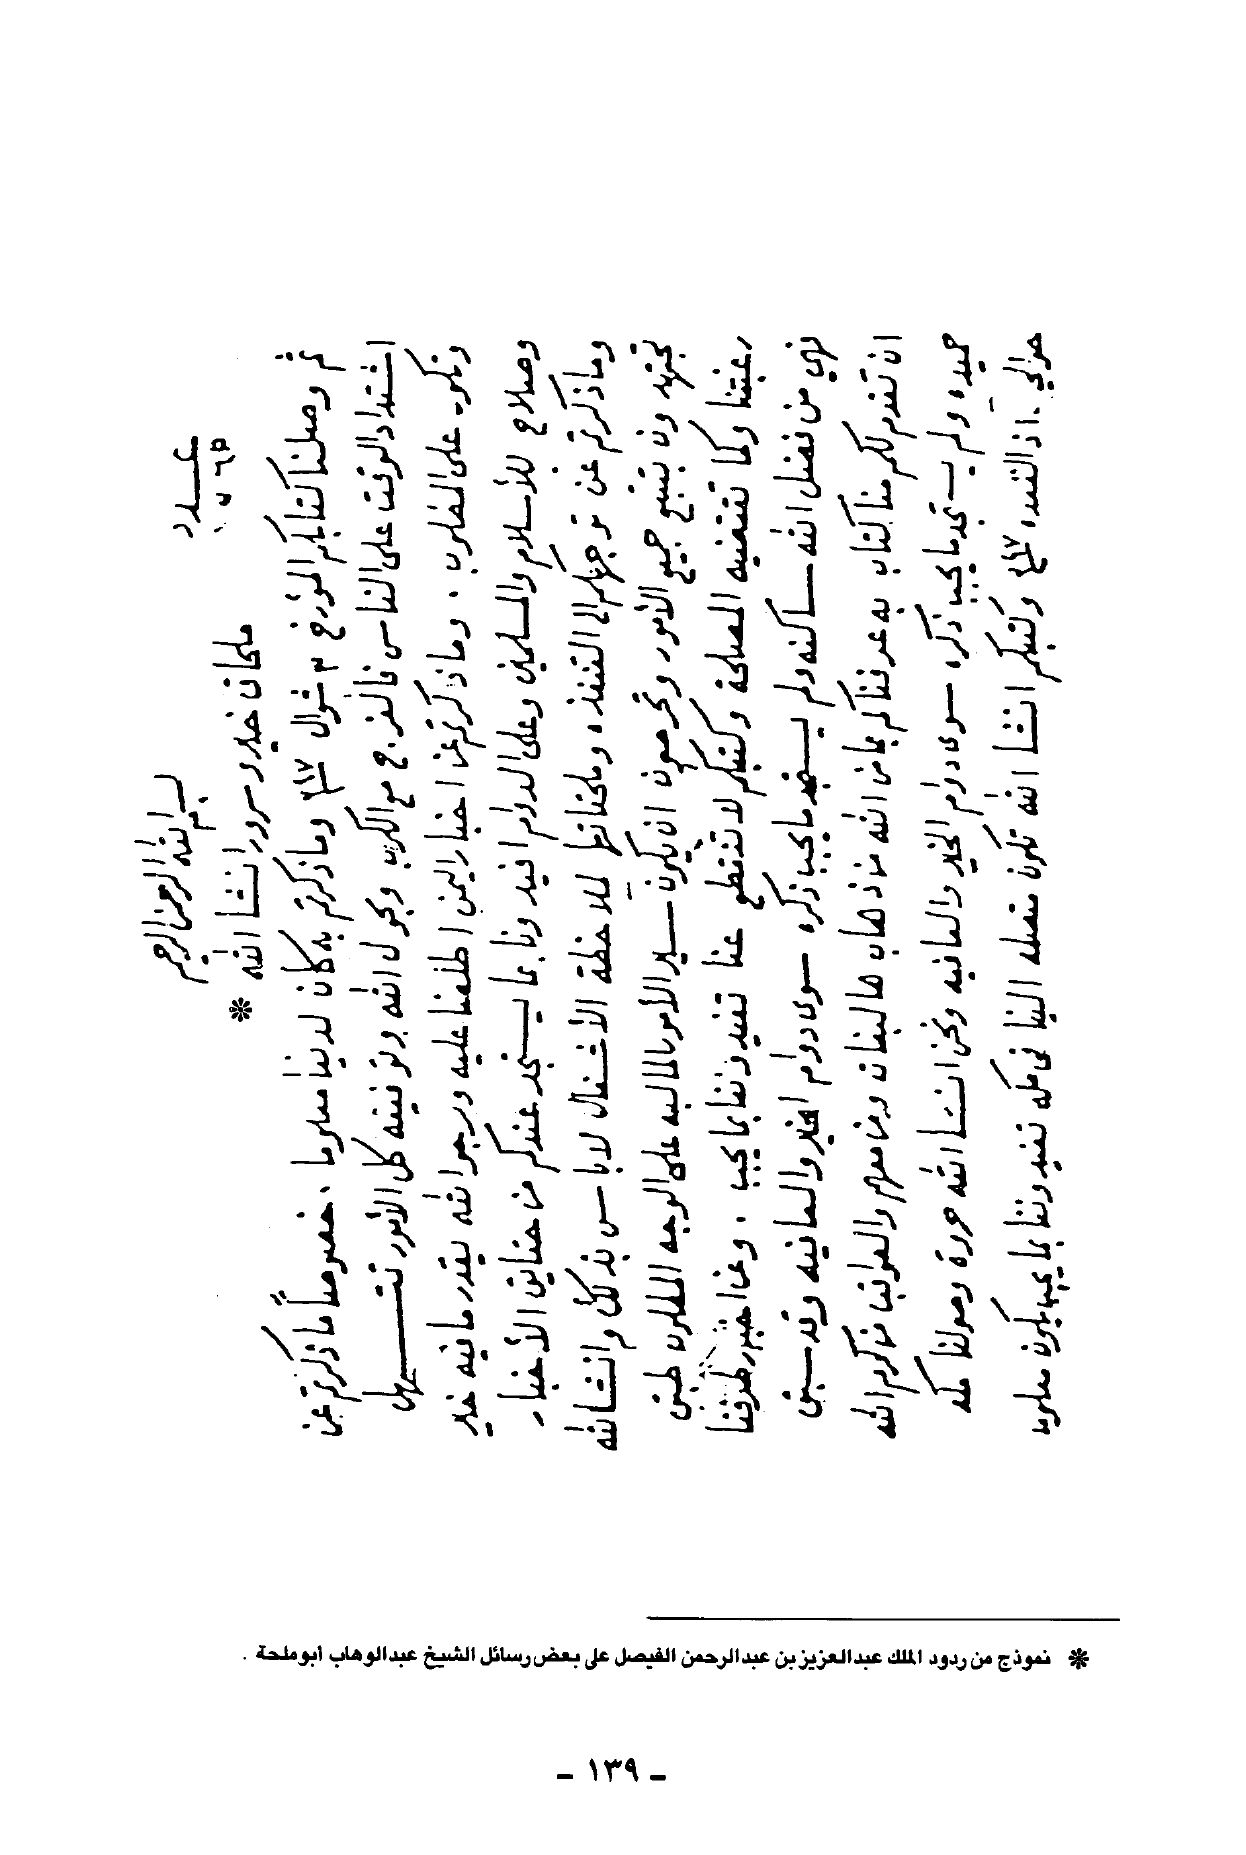 بسم الله الرحمن الرحيم
عدد
ملحان خير وسرور انشا الله *
ثم وصلنا كتابكم المؤرخ ٣ شوال وماذكرتم به كان لدينا معلوما . خصوصاً ماذكرتم عن
اشتداد الوقت على الناس فالفرج مع الكرب وبحول الله وتوفيقه كل الأمور تتسهل
وتكون على المطلوب . وماذكرتم عن اخبار اليمن اطلعنا عليه ونرجوا الله يقدر مافيه خير
وصلاح للأسلام والمسلمين وعلى الدوام افيدونا بما يستجد عندكم من حقايق الأخبار
وماذكرتم عن توجهكم الى القنفذه وملحقاتها لملاحظة الأشغال لاباس بذلك وانشالله
تجتهدون بتتبع جميع الأمور وتحرصون ان يكون سير الأمور الماليه على الوجه المطلوب طبق
رغبتنا وكما تقتضيه المصلحة وكتبكم لاتنقطع عنا تفيدونا بما يجب . وعن اخبار طرفنا
فهي من فضل الله ساكنه ولم يستجد مايجب ذكره سوى دوام الخير والعافيه وقد سبق
ان تقدم لكم منا كتاب به عرفناكم بما من الله من ذهاب هالبغاة ومن معهم والعواقب من كرم الله
حميده ولم يستجد مايجب ذكره سوى دوام الخير والعافيه ونحن انشا الله حررة وصولنا مكه
حوالي ١٠ ذالقعده وكتبكم انشا الله تكون متصله الينا في مكه تفيدونا بما يجب يكون معلوما
* نموذج من ردود الملك عبدالعزيز بن عبدالرحمن الفيصل على بعض رسائل الشيخ عبدالوهاب أبوملحة .
- ١٣٩ -